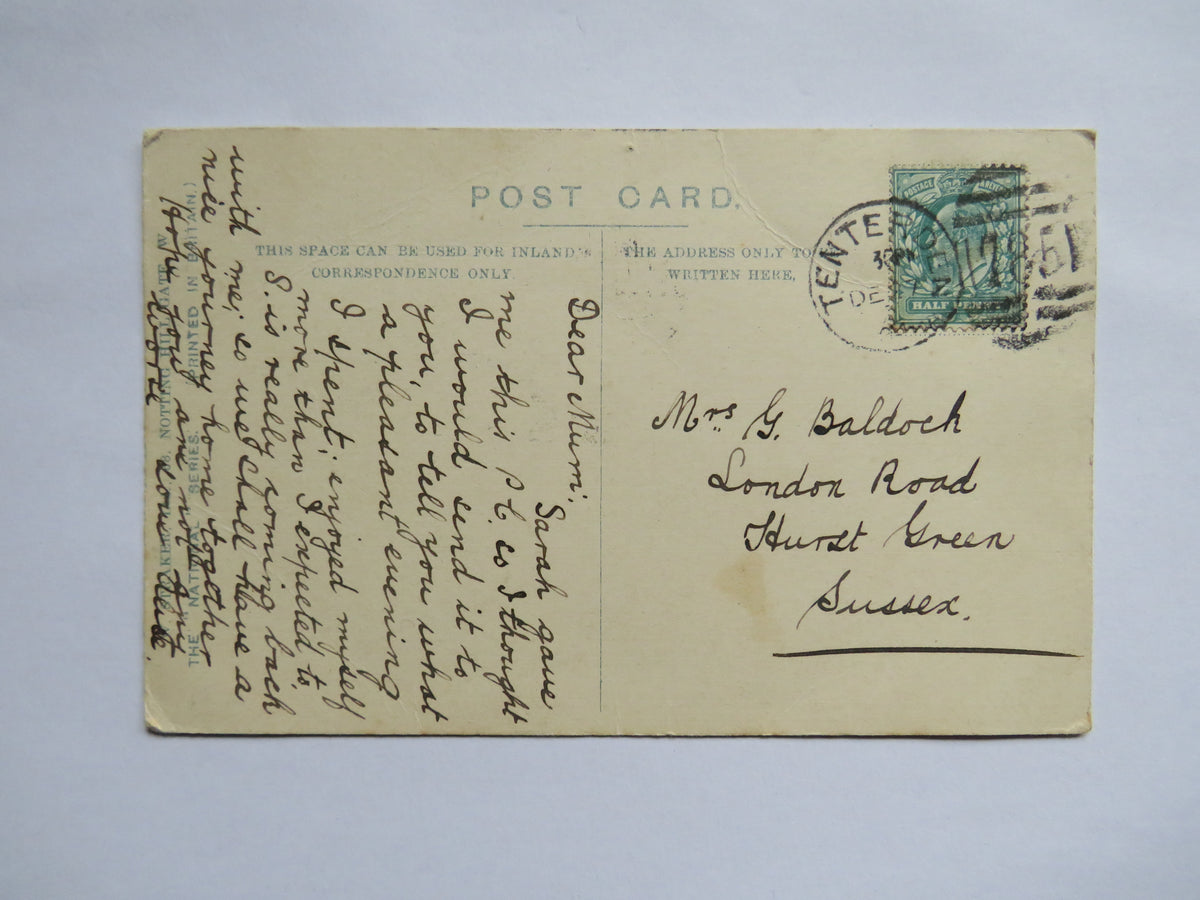 POST CARD.
THIS SPACE CAN BE USED FOR INLAND
CORRESPONDENCE ONLY.
THE ADDRESS ONLY TO
WRITTEN HERE,
POSTAGE
HALF PENNY
TENTERD
DE
Mrs. G. Baldock
London Road
Hurst Green
Sussex.
Dear Mum.
Sarah gave
me this P.C. so I thought
I would send it to
you, to tell you what
a pleasant evening
I spent, enjoyed myself
more than I expected to.
S. is really coming back
with me, so we shall have a
nice journey home together
Hope you are not
THE NATIONAL SERIES. PRINTED IN BRITAIN.)
NOTTING HILL GATE W